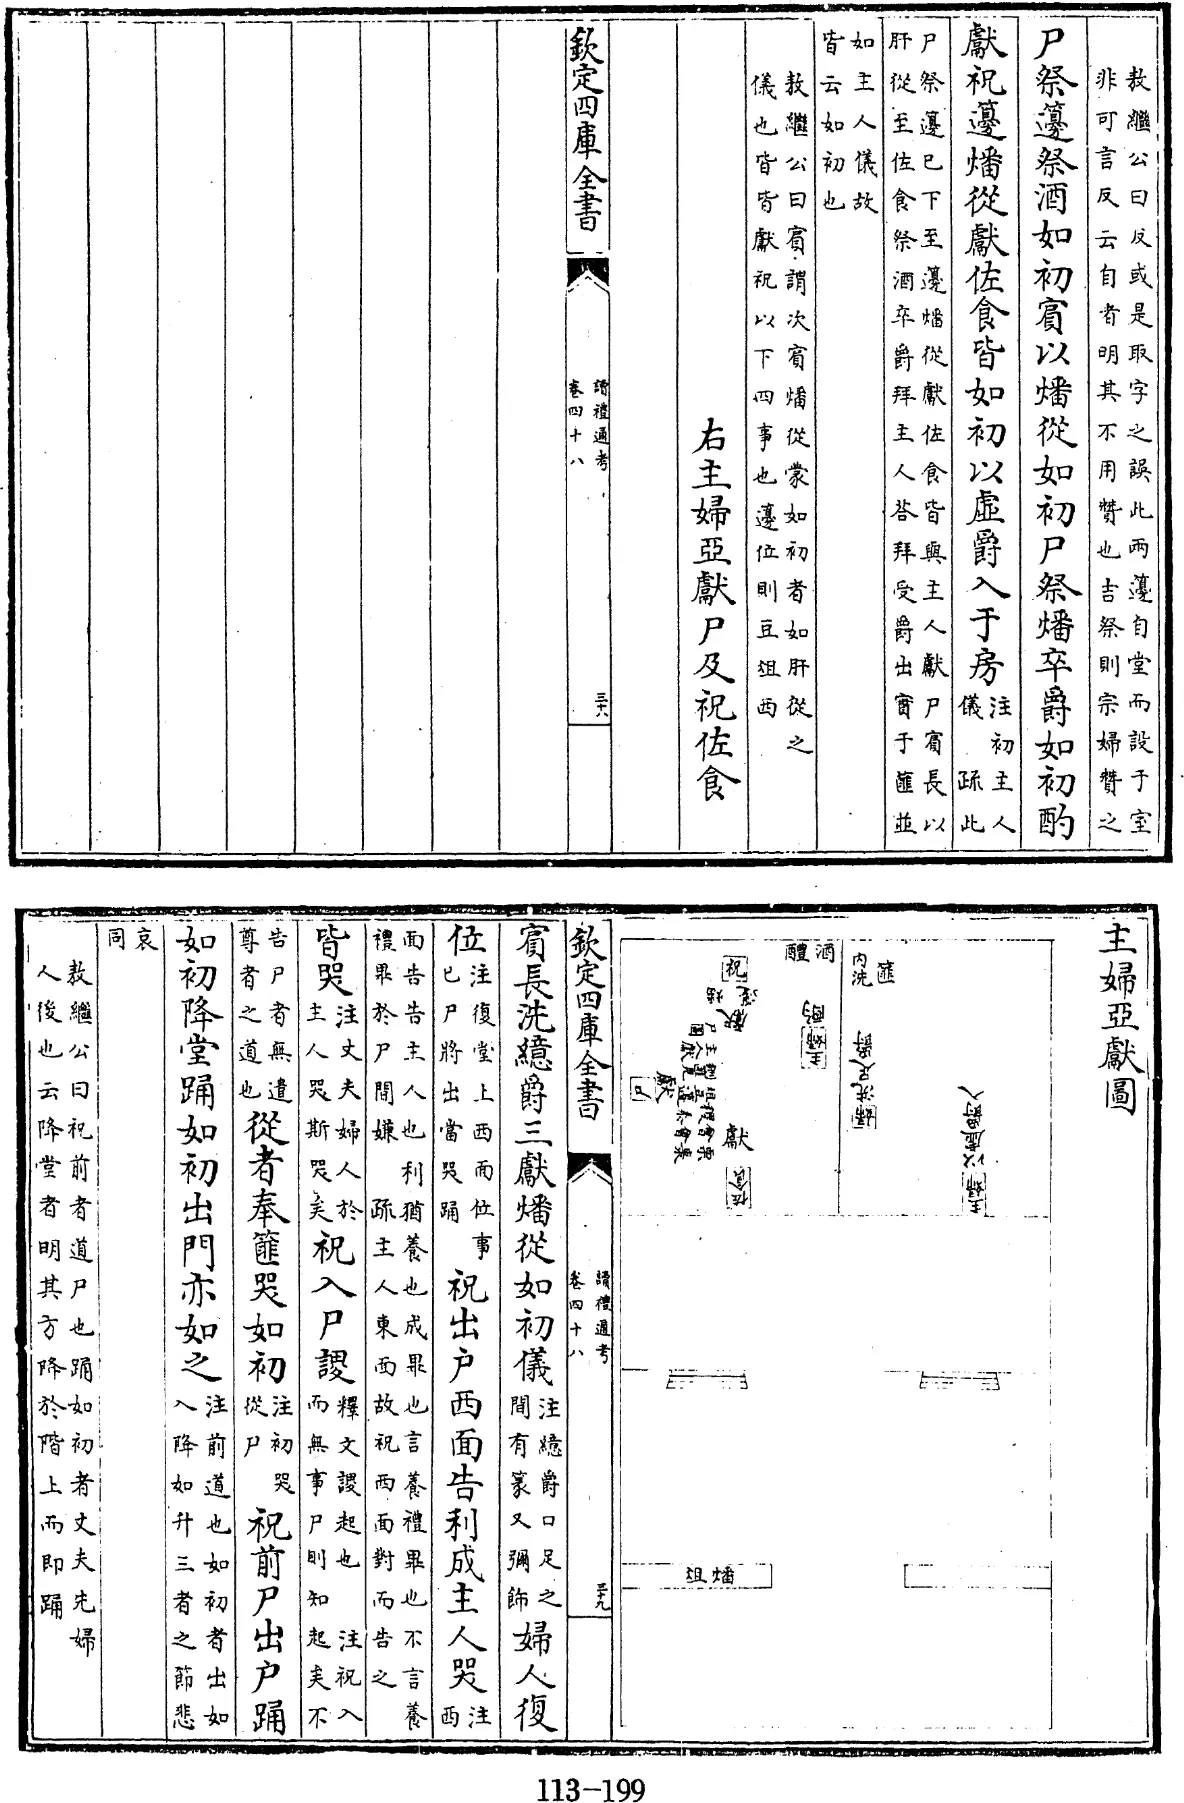 敖繼公曰反或是取字之誤此兩籩自堂而設于室
非可言反云自者明其不用贊也吉祭則宗婦贊之
尸祭籩祭酒如初賓以燔從如初尸祭燔卒爵如初酌
獻祝籩燔從獻佐食皆如初以虛爵入于房
注初主人
儀 疏此
尸祭籩已下至籩燔從獻佐食皆與主人獻尸賓長以
肝從至佐食祭酒卒爵拜主人荅拜受爵出實于篚並
如主人儀故
皆云如初也
敖繼公曰賓謂次賓燔從蒙如初者如肝從之
儀也皆皆獻祝以下四事也籩位則豆俎西
右主婦亞獻尸及祝佐食
欽定四庫全書
讀禮通考
卷四十八
三十八
主婦亞獻圖
篚
內洗
主婦以虛爵入
婦洗足爵
酒
醴
主婦
酌
祝
籩燔
獻
尸
獻
獻
佐食
燔俎
欽定四庫全書
讀禮通考
卷四十八
三十九
賓長洗繶爵三獻燔從如初儀
注繶爵口足之
間有篆又彌飾
婦人復
位
注復堂上西面位事
已尸將出當哭踊
祝出户西面告利成主人哭
注
西
面告告主人也利猶養也成畢也言養禮畢也不言養
禮畢於尸間嫌 疏主人東面故祝西面對而告之
皆哭
注丈夫婦人於
主人哭斯哭矣
祝入尸謖
釋文謖起也 注祝入
而無事尸則知起矣不
告尸者無遣
尊者之道也
從者奉篚哭如初
注初哭
從尸
祝前尸出户踊
如初降堂踊如初出門亦如之
注前道也如初者出如
入降如升三者之節悲
哀
同
敖繼公曰祝前者道尸也踊如初者丈夫先婦
人後也云降堂者明其方降於階上而即踊
113-199